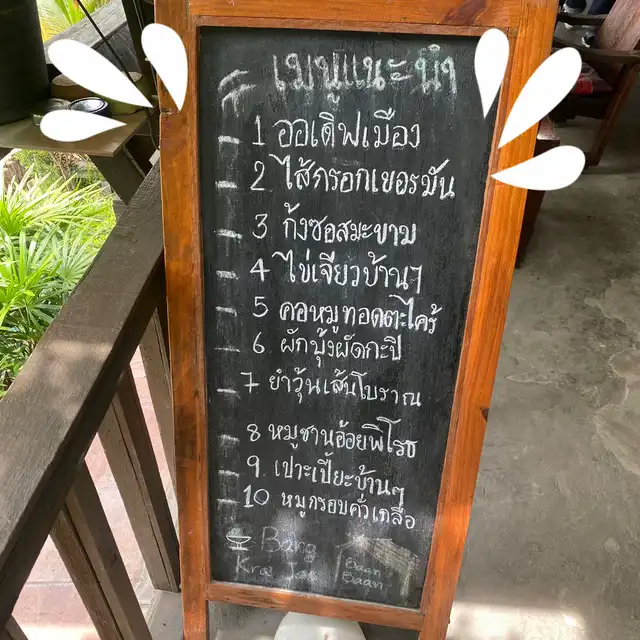 เมนูแนะนำ
1 ออเดิฟเมือง
2 ไส้กรอกเยอรมัน
3 กุ้งซอสมะขาม
4 ไข่เจียวบ้านๆ
5 คอหมูทอดตะไคร้
6. ผักบุ้งผัดกะปิ
7 ยำวุ้นเส้นโบราณ
8 หมูชานอ้อยพิโรธ
9. เปาะเปี๊ยะบ้านๆ
10 หมูกรอบคั่วเกลือ
Bang
Baan
Baan